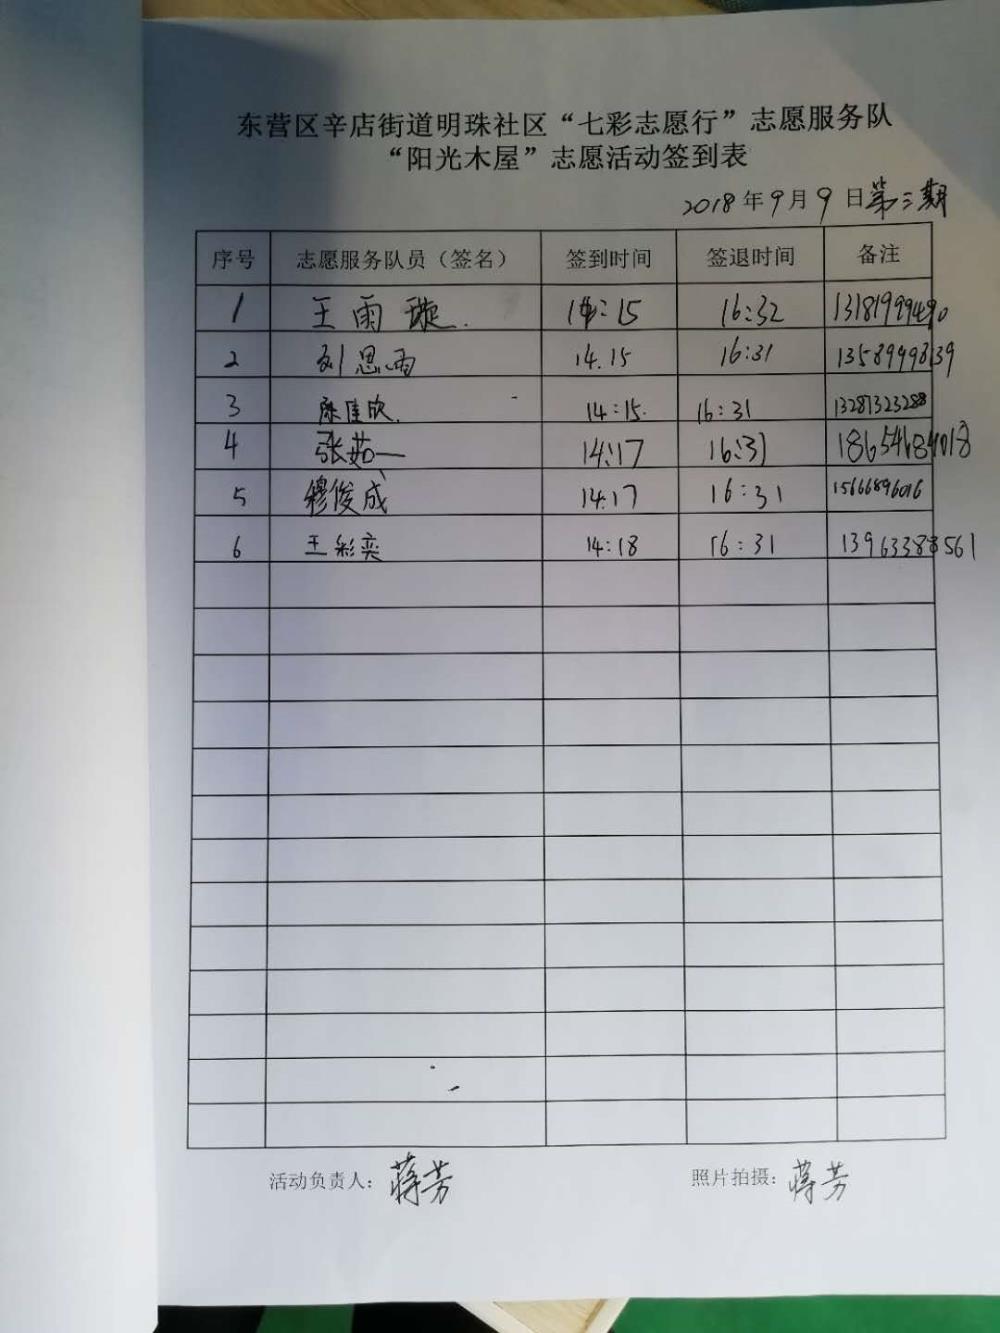 东营区辛店街道明珠社区“七彩志愿行”志愿服务队
“阳光木屋”志愿活动签到表
2018年9月9日第三期
序号 志愿服务队员（签名） 签到时间 签退时间 备注
1 王雨璇. 14:15 16:32 13181999490
2 刘思雨 14.15 16:31 13589998139
3 陈佳欣. 14:15. 16:31 13281323288
4 张茹一 14:17 16:31 18654684018
5 穆俊成 14:17 16:31 15666896016
6 王彩奕 14:18 16:31 13963388561
活动负责人：蒋芳 照片拍摄：蒋芳